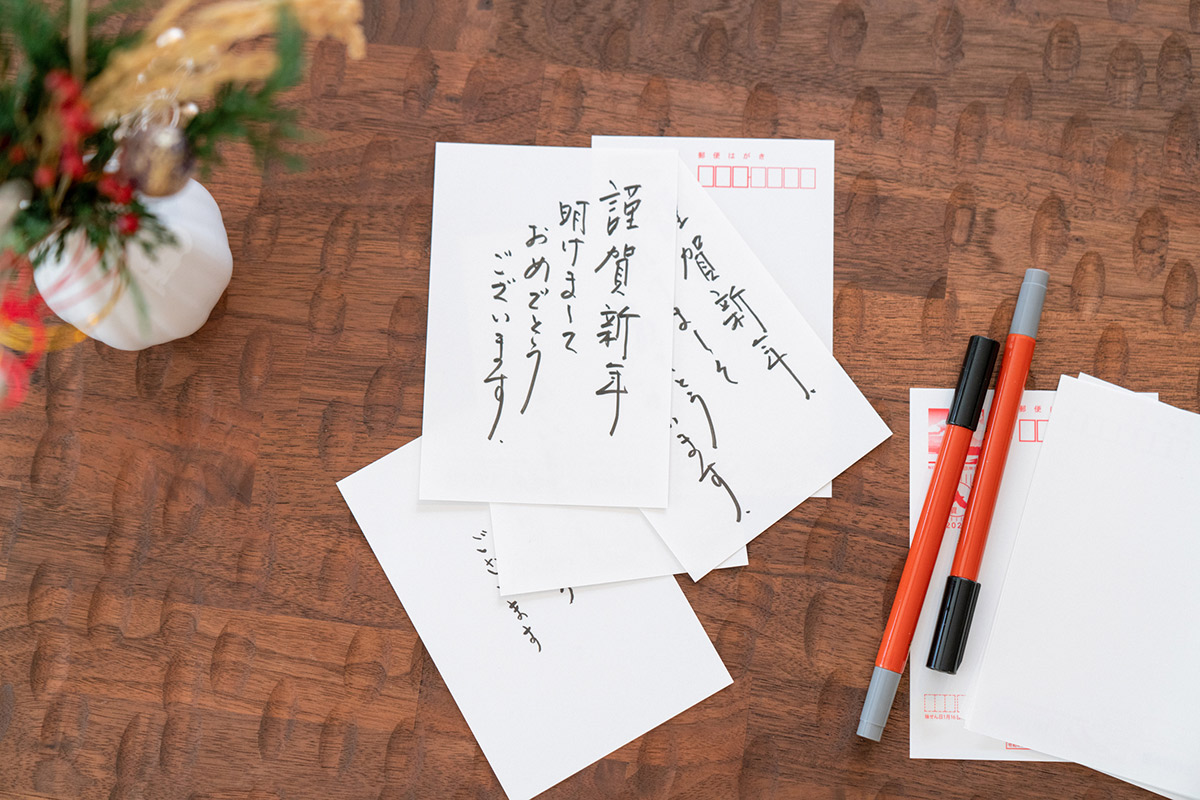 謹賀新年
明けまして
おめでとう
ございます.
郵便はがき
賀新年.
まして
とう
います.
ございます
郵便は
202